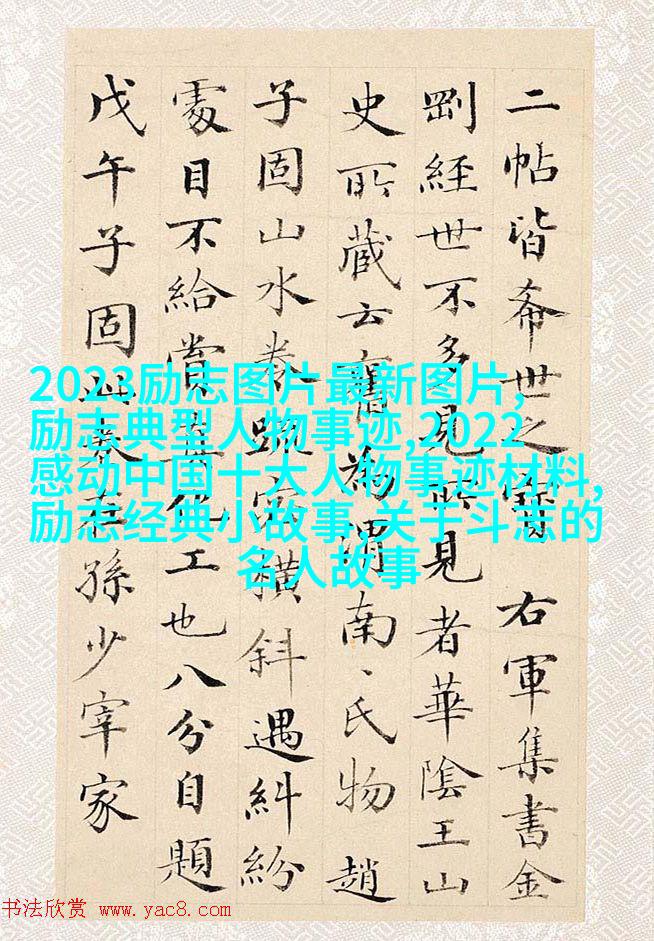 二帖皆希世之寶 右軍集書金
剛經世不多見所見者華陰王山
史所藏云舊為渭南、氏物 趙
子固山水卷疏密橫斜遇糾紛
處目不給賞化工也八分自題
戊午子固此卷在孫少宰家
2023励志图片最新图片,
励志典型人物事迹,2022
感动中国十大人物事迹材料,
励志经典小故事,关于斗志的
名人故事
书法欣赏 www.yac8.com